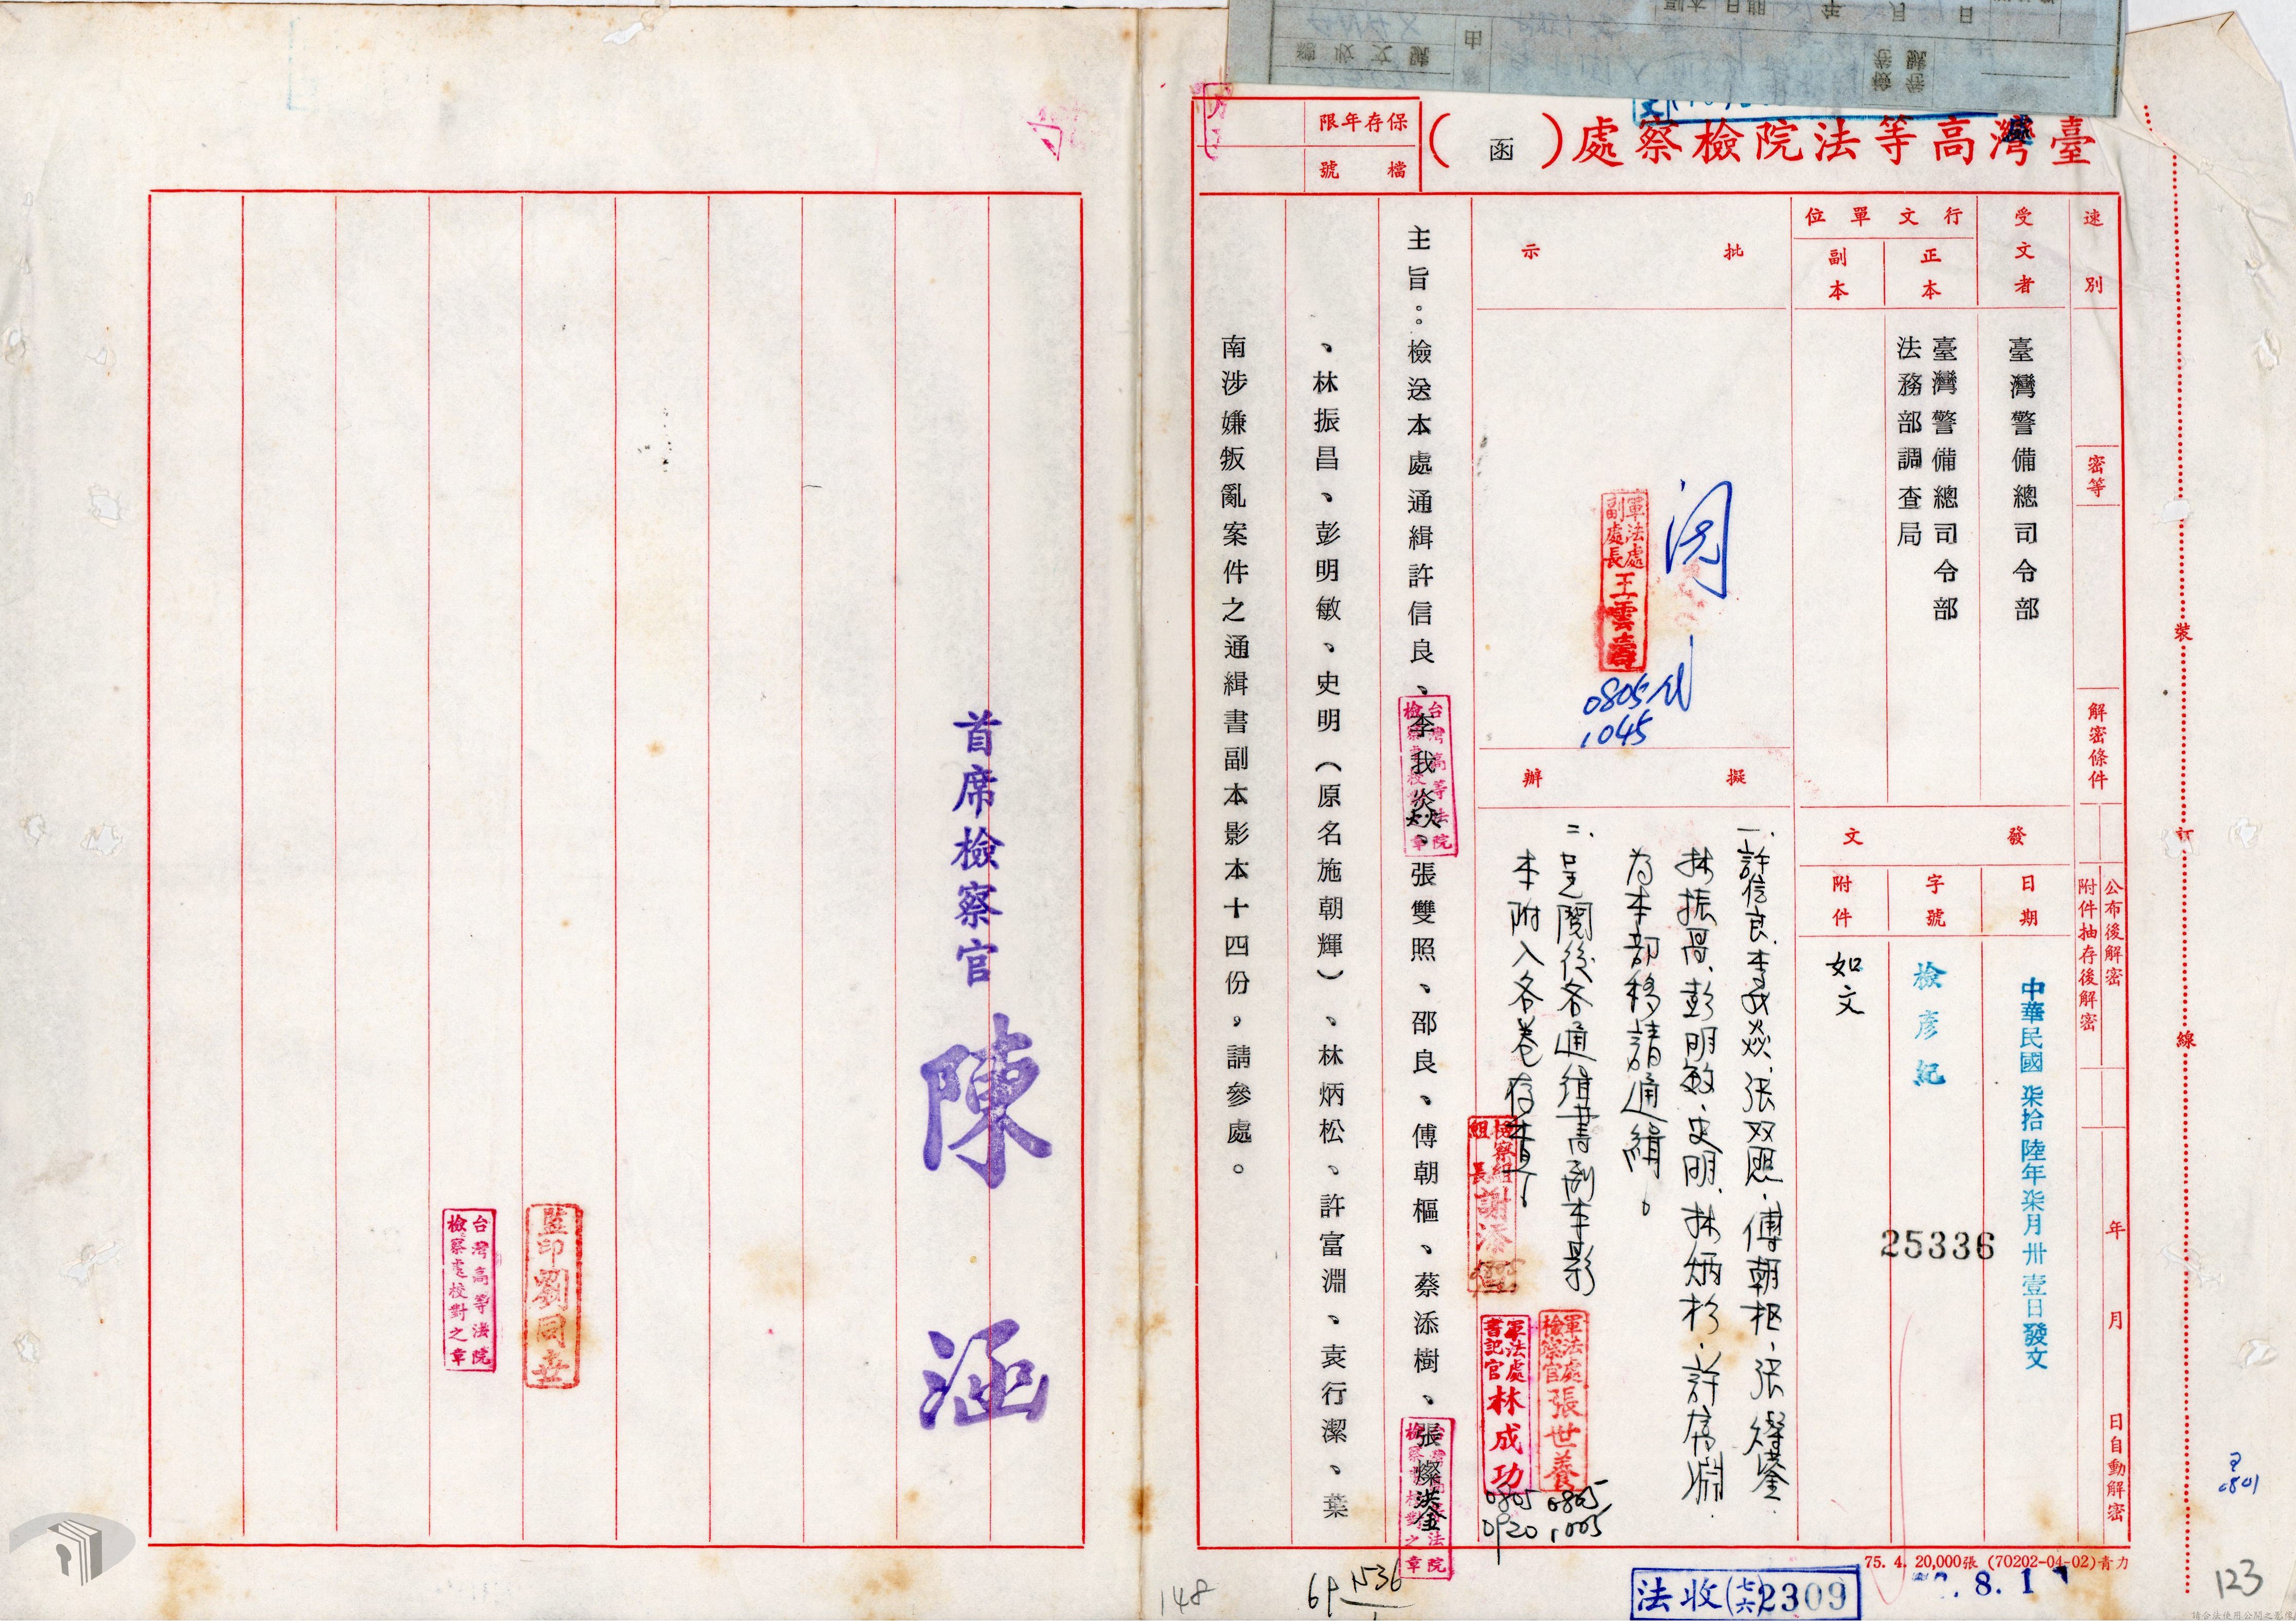 臺灣高等法院檢察處（函）
保存年限
檔號
速別
密等
解密條件
公布後解密
附件抽存後解密
年月日自動解密
受文者
臺灣警備總司令部
行文單位
正本
臺灣警備總司令部
法務部調查局
副本
發文
日期
中華民國柒拾陸年柒月卅壹日發文
字號
檢彥紀
25336
附件
如文
批示
閱
軍法處
副處長王雲濤
0805
1045
擬辦
一、許信良、李我焱、張双照、傅朝枢、張燦鍙、
林振昌、彭明敏、史明、林炳松、許富淵
為本部移請通緝。
二、呈閱後各通緝書副本影
本附入各卷存查。
檢察組
組長謝添
軍法處
檢察官張世養
0805
1005
軍法處
書記官林成功
0805
0920
主旨：檢送本處通緝許信良、李我焱、張雙照、邵良、傅朝樞、蔡添樹、張燦鍙
、林振昌、彭明敏、史明（原名施朝輝）、林炳松、許富淵、袁行潔、葉
南涉嫌叛亂案件之通緝書副本影本十四份，請參處。
台灣高等法院
檢察處校對之章
台灣高等法院
檢察處校對之章
裝
訂
線
75. 4. 20,000張 (70202-04-02)青力
法收(七六)2309
8. 1
0801
123
148
1536
首席檢察官陳涵
監印劉同世
台灣高等法院
檢察處校對之章
總收文號